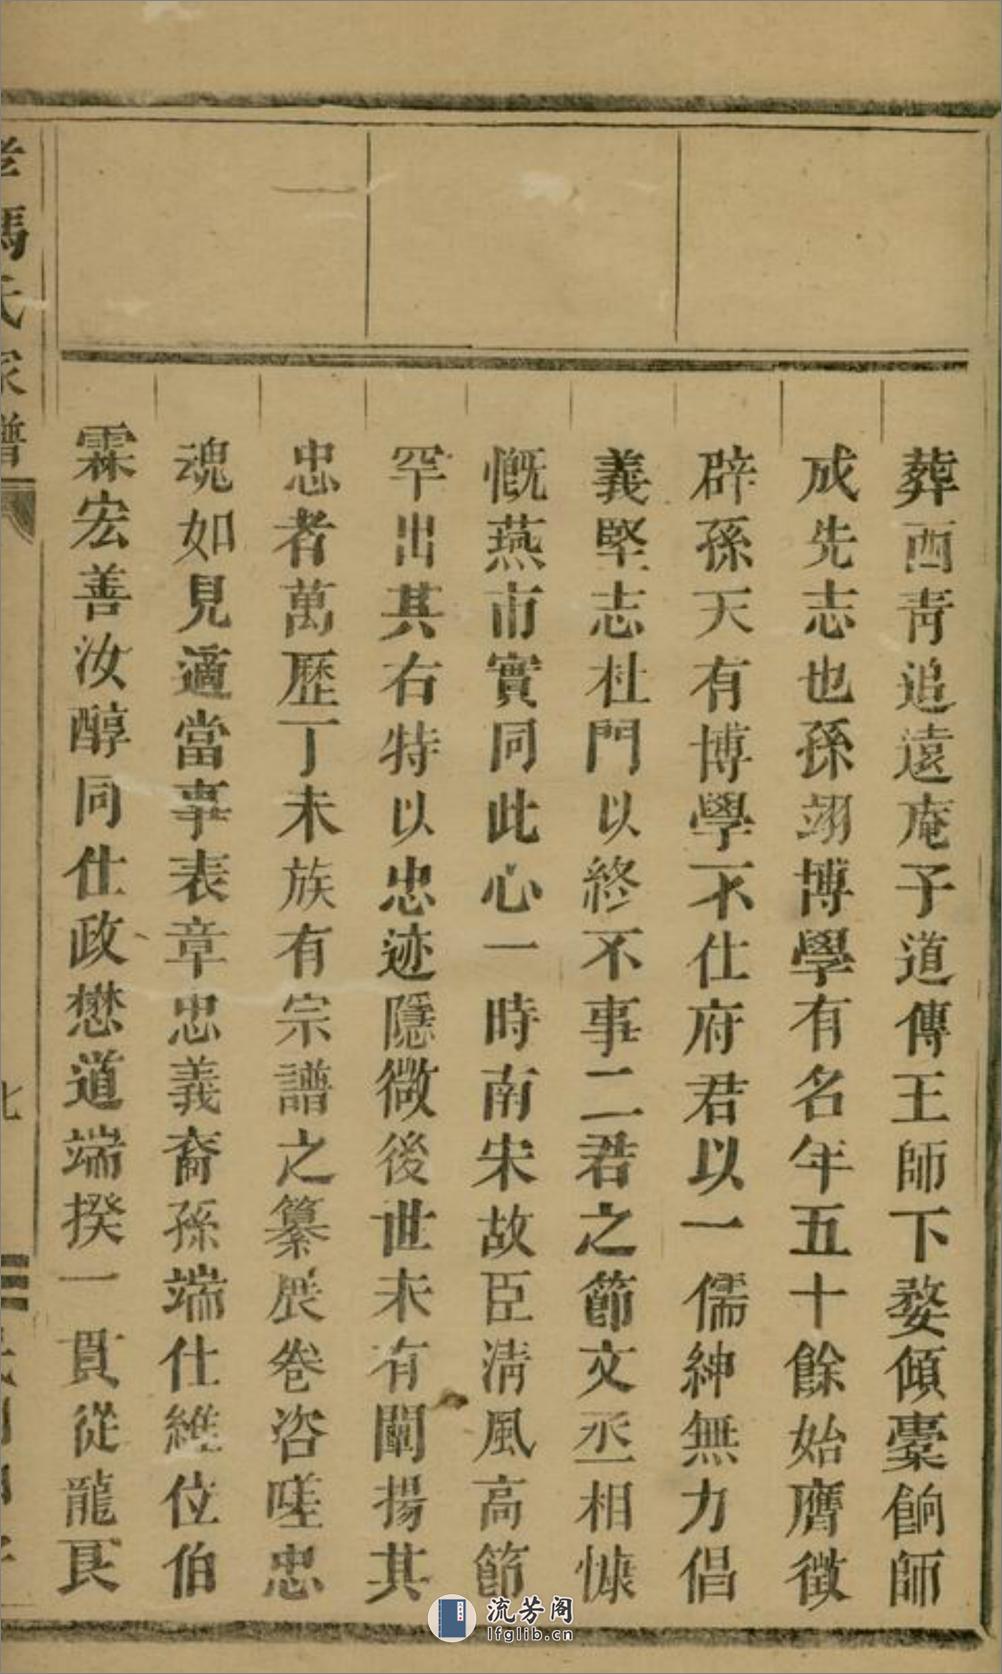 葬西青追遠庵子道傳王師下婺傾橐餉師
成先志也孫翊博學有名年五十餘始膺徵
辟孫天有博學不仕府君以一儒紳無力倡
義堅志杜門以終不事二君之節文丞相慷
慨燕市實同此心一時南宋故臣清風高節
罕出其右特以忠迹隱微後世未有闡揚其
忠者萬歷丁未族有宗譜之纂展卷咨嗟忠
魂如見適當事表章忠義裔孫端仕維位伯
霖宏善汝醇同仕政懋道端揆一貫從龍良
馮氏家譜
七
流芳阁
lfglib.cn